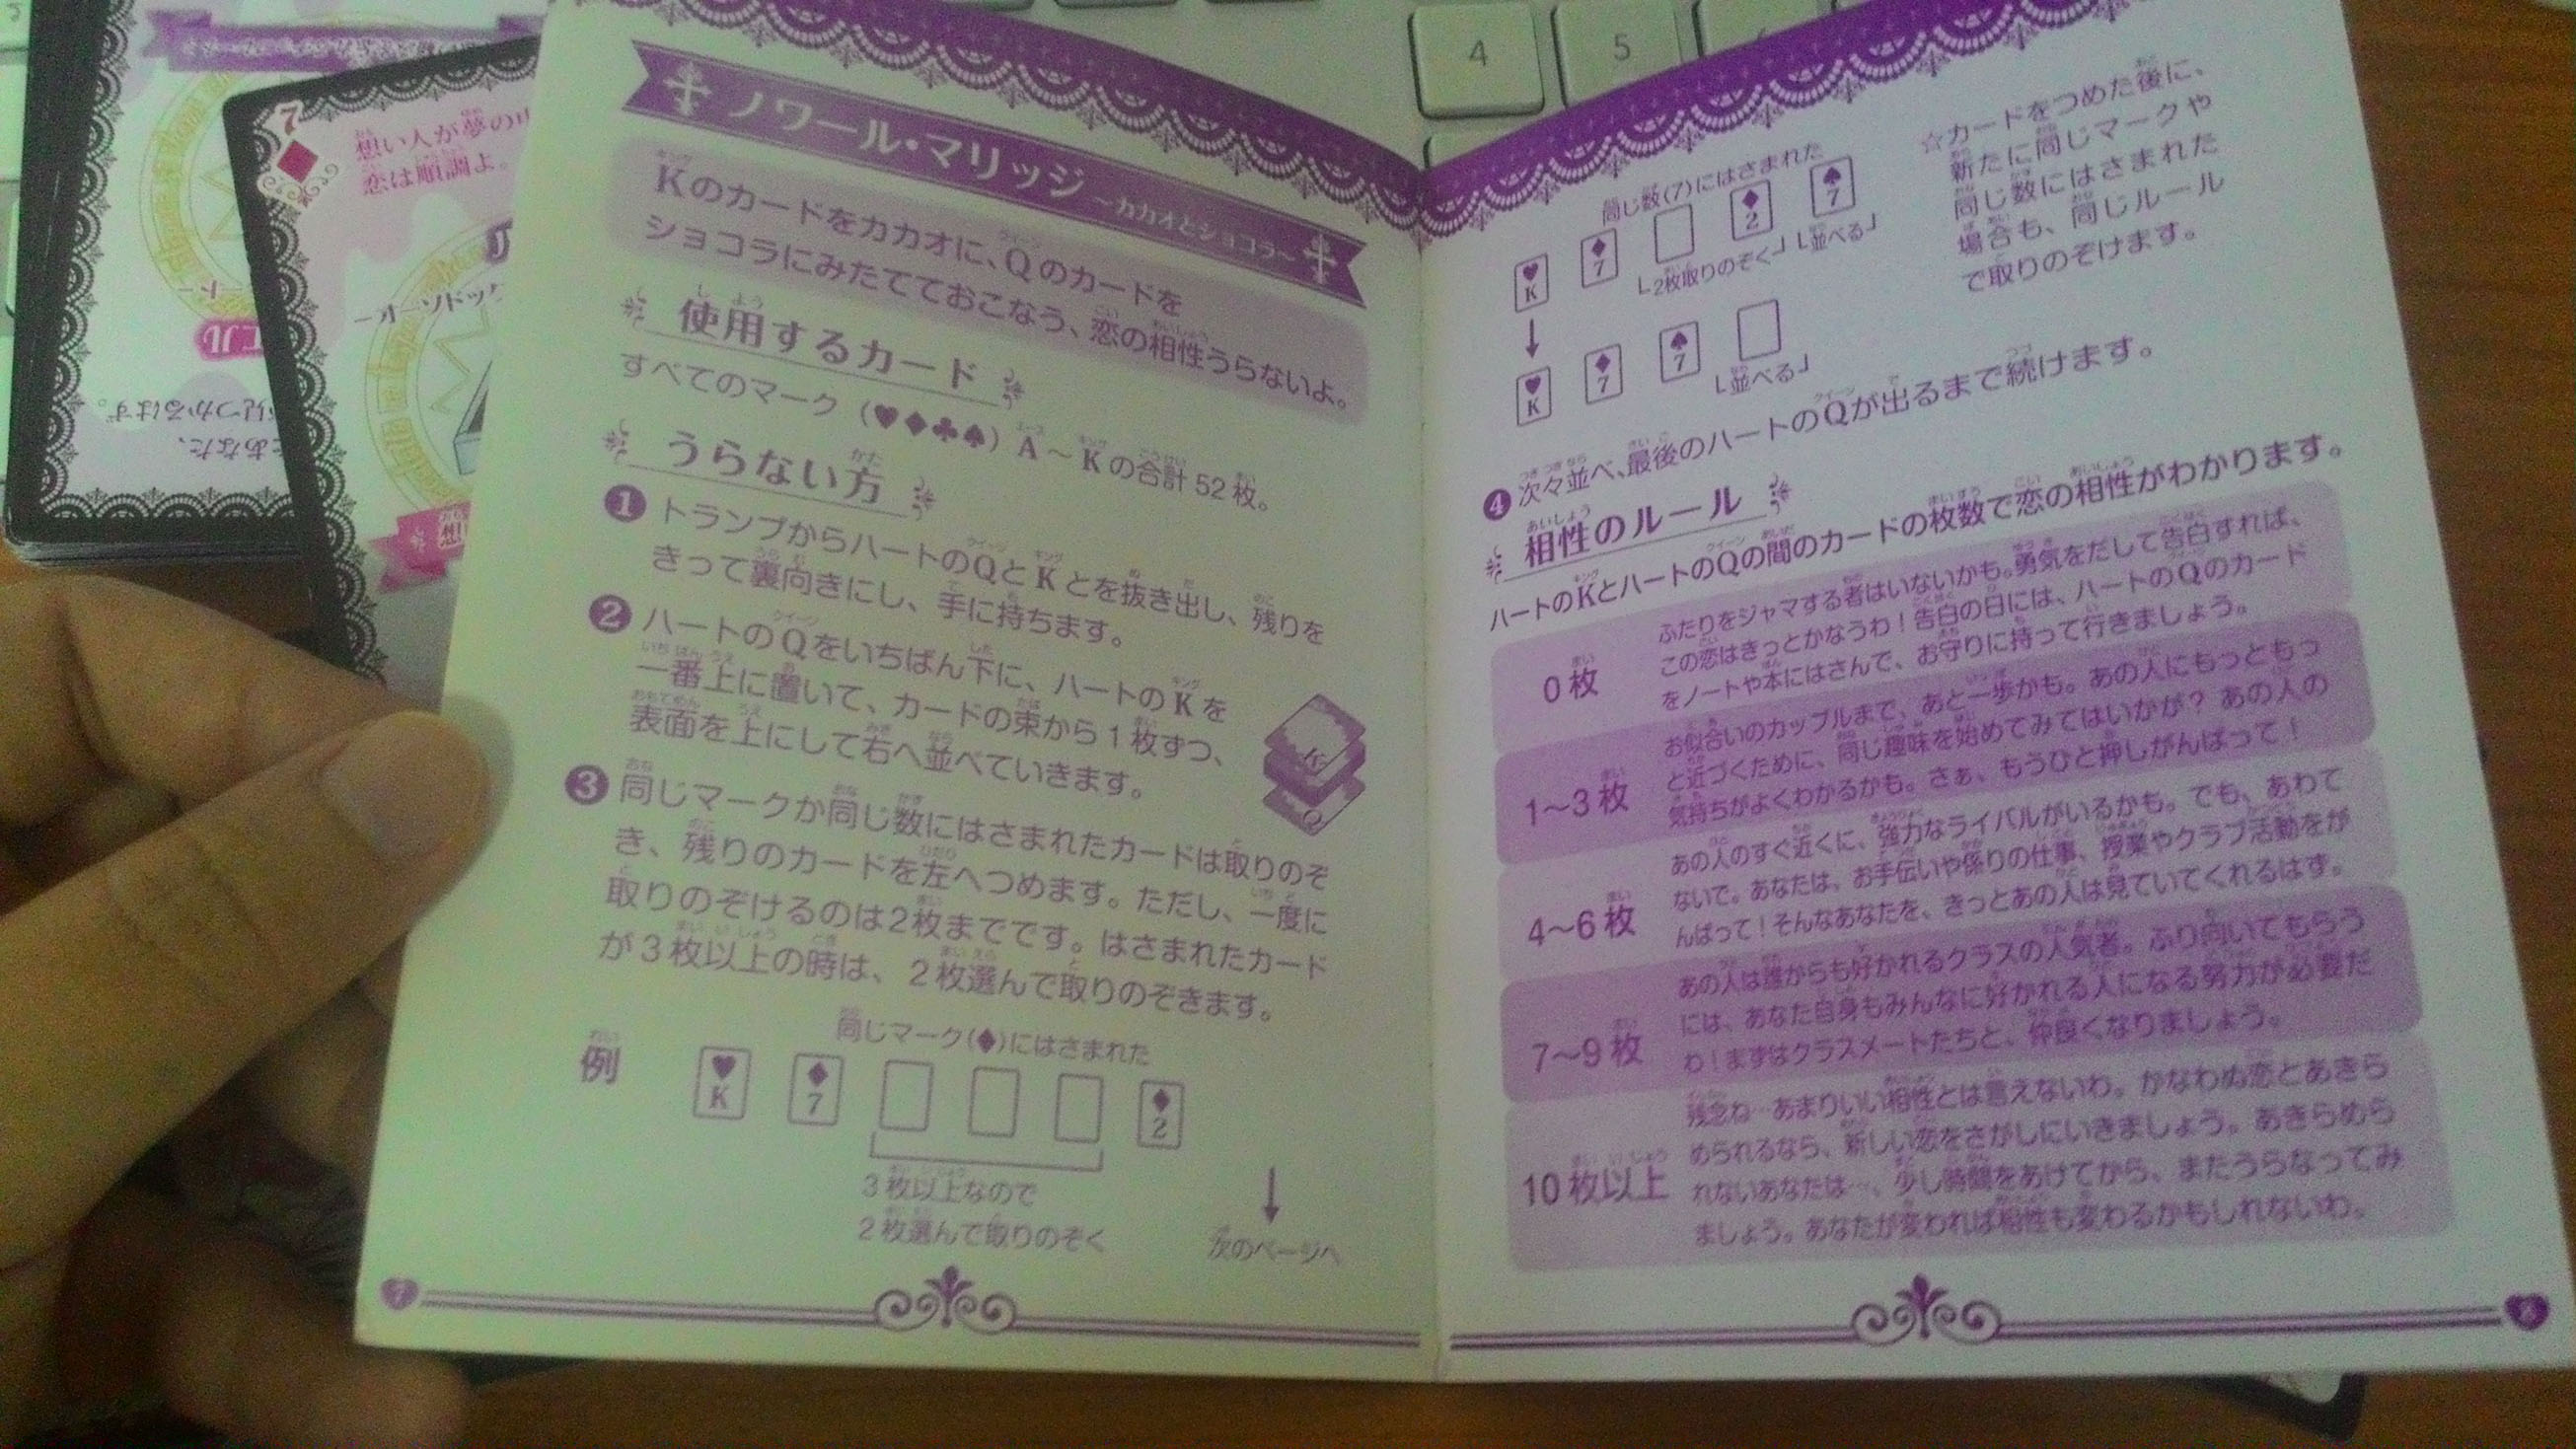 4
5
7
想い人が夢の中
恋は順調よ。
ノワール・マリッジ ～カカオとショコラ～
Kのカードをカカオに、Qのカードを
ショコラにみたてておこなう、恋の相性うらないよ。
使用するカード
すべてのマーク（♥♦♣♠）A～Kの合計52枚。
うらない方
❶ トランプからハートのQとKとを抜き出し、残りを
きって裏向きにし、手に持ちます。
❷ ハートのQをいちばん下に、ハートのKを
一番上に置いて、カードの束から1枚ずつ、
表面を上にして右へ並べていきます。
❸ 同じマークか同じ数にはさまれたカードは取りのぞ
き、残りのカードを左へつめます。ただし、一度に
取りのぞけるのは2枚までです。はさまれたカード
が3枚以上の時は、2枚選んで取りのぞきます。
例
同じマーク(♦)にはさまれた
♥K ♦7 ♦2
3枚以上なので
2枚選んで取りのぞく
↓
次のページへ
7
同じ数(7)にはさまれた
♥K ♦7 ♦2 ♠7
└2枚取りのぞく┘└並べる┘
↓
♥K ♦7 ♠7
└並べる┘
☆カードをつめた後に、
新たに同じマークや
同じ数にはさまれた
場合も、同じルール
で取りのぞけます。
❹ 次々並べ、最後のハートのQが出るまで続けます。
相性のルール
ハートのKとハートのQの間のカードの枚数で恋の相性がわかります。
0枚
ふたりをジャマする者はいないかも。勇気をだして告白すれば、
この恋はきっとかなうわ！告白の日には、ハートのQのカード
をノートや本にはさんで、お守りに持って行きましょう。
1～3枚
お似合いのカップルまで、あと一歩かも。あの人にもっともっ
と近づくために、同じ趣味を始めてみてはいかが？あの人の
気持ちがよくわかるかも。さぁ、もうひと押しがんばって！
4～6枚
あの人のすぐ近くに、強力なライバルがいるかも。でも、あわて
ないで。あなたは、お手伝いや係りの仕事、授業やクラブ活動をが
んばって！そんなあなたを、きっとあの人は見ていてくれるはず。
7～9枚
あの人は誰からも好かれるクラスの人気者。ふり向いてもらう
には、あなた自身もみんなに好かれる人になる努力が必要だ
わ！まずはクラスメートたちと、仲良くなりましょう。
10枚以上
残念ね…あまりいい相性とは言えないわ。かなわぬ恋とあきら
められるなら、新しい恋をさがしにいきましょう。あきらめら
れないあなたは…、少し時間をあけてから、またうらなってみ
ましょう。あなたが変われば相性も変わるかもしれないわ。
8